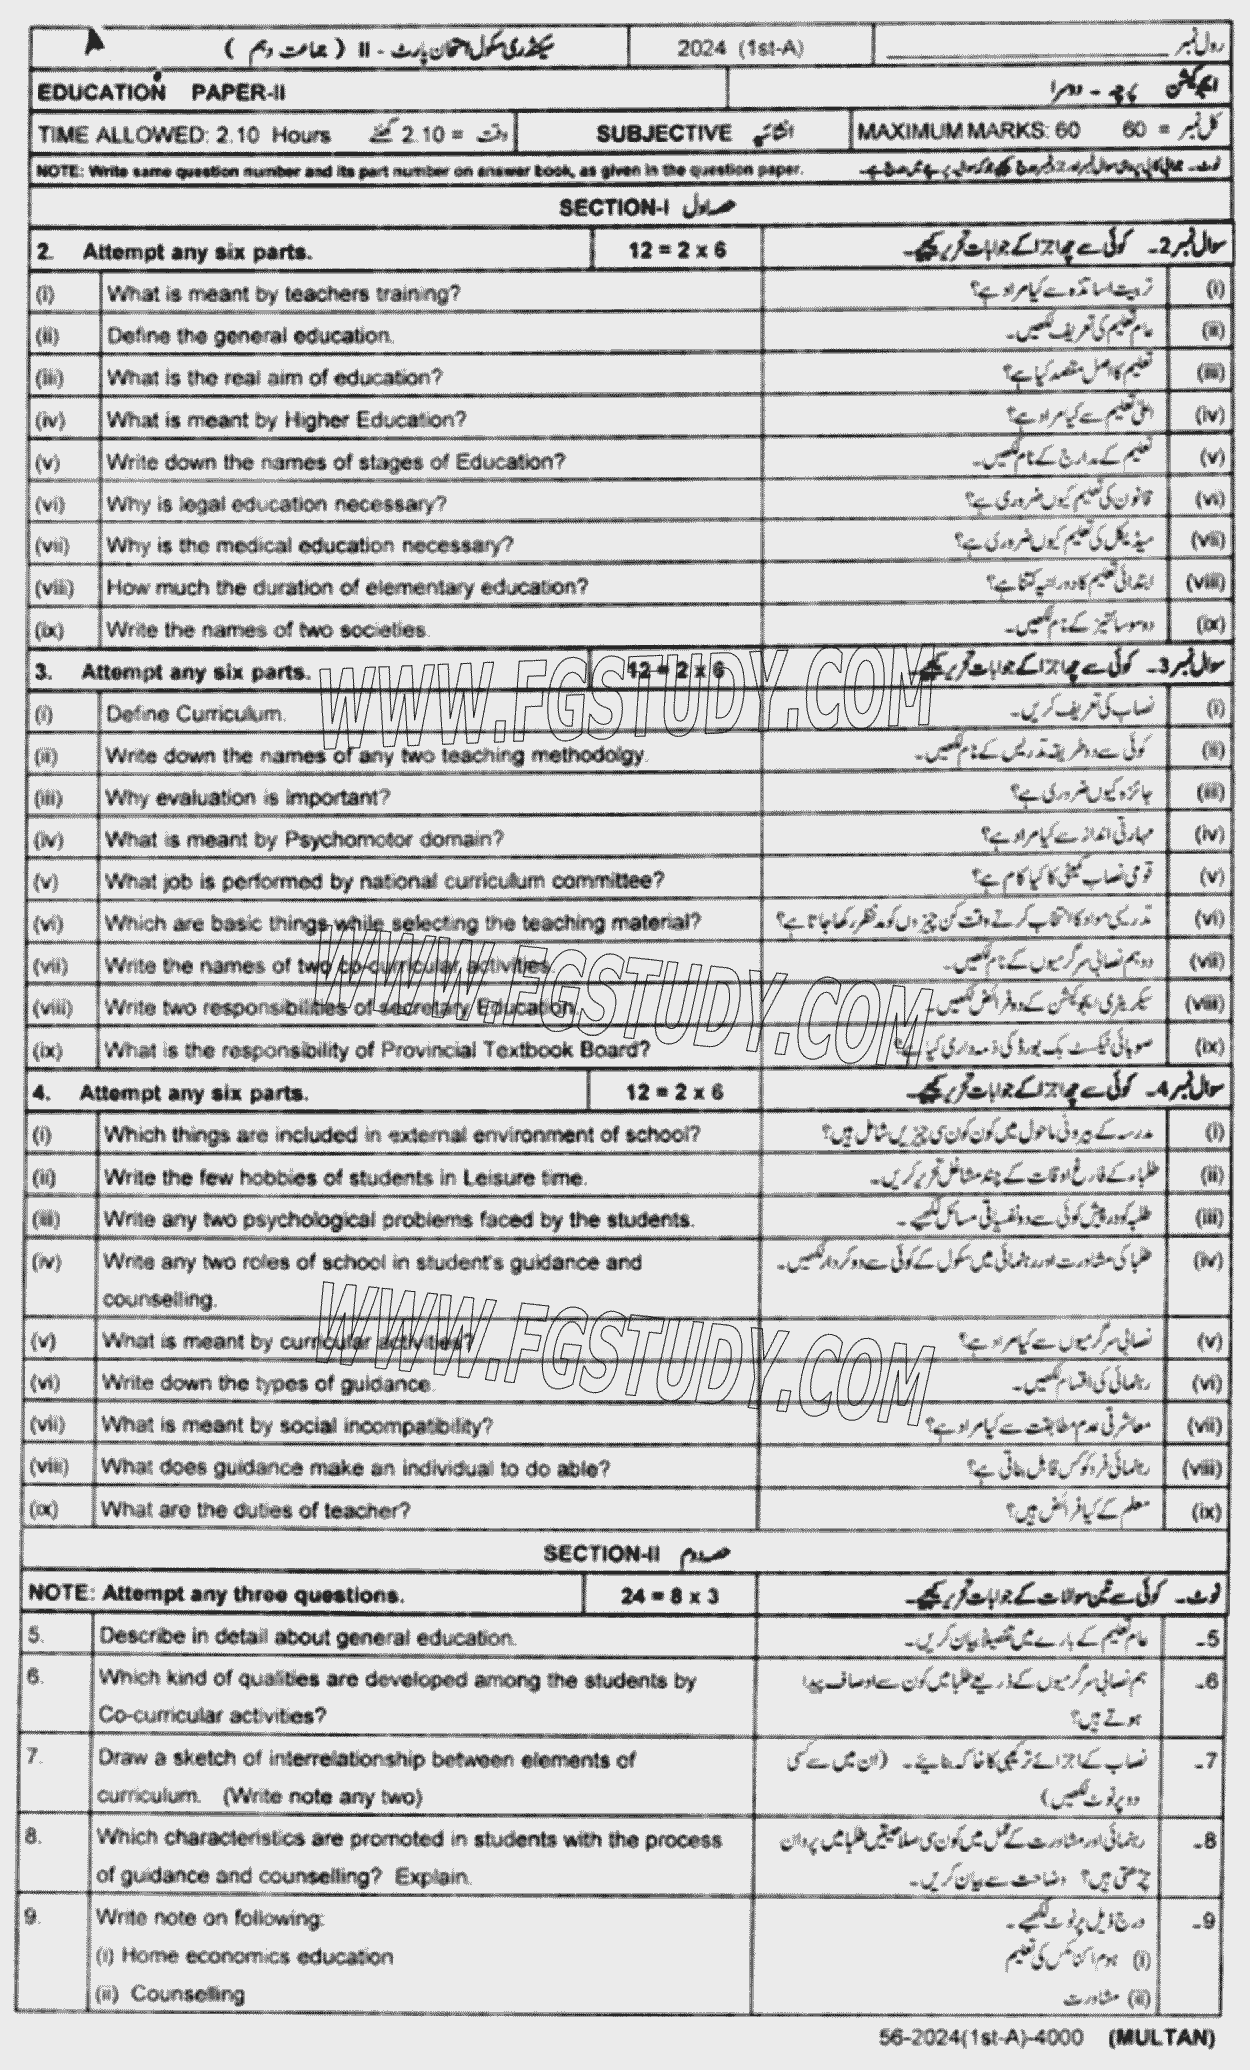 سیکنڈری سکول امتحان پارٹ - II ( جماعت دہم ) 2024 (1st-A) رول نمبر
EDUCATION PAPER-II ایجوکیشن پرچہ - دوسرا
TIME ALLOWED: 2.10 Hours وقت = 2.10 گھنٹے SUBJECTIVE انشائیہ MAXIMUM MARKS: 60 کل نمبر = 60
NOTE: Write same question number and its part number on answer book, as given in the question paper.
SECTION-I حصہ اول
2. Attempt any six parts. 12 = 2 x 6 سوال نمبر 2۔ کوئی سے چھ اجزا کے جوابات تحریر کیجیے۔
(i) What is meant by teachers training? تربیت اساتذہ سے کیا مراد ہے؟ (i)
(ii) Define the general education. عام تعلیم کی تعریف لکھیں۔ (ii)
(iii) What is the real aim of education? تعلیم کا اصل مقصد کیا ہے؟ (iii)
(iv) What is meant by Higher Education? اعلیٰ تعلیم سے کیا مراد ہے؟ (iv)
(v) Write down the names of stages of Education? تعلیم کے مدارج کے نام لکھیں۔ (v)
(vi) Why is legal education necessary? قانون کی تعلیم کیوں ضروری ہے؟ (vi)
(vii) Why is the medical education necessary? میڈیکل کی تعلیم کیوں ضروری ہے؟ (vii)
(viii) How much the duration of elementary education? ابتدائی تعلیم کا دورانیہ کتنا ہے؟ (viii)
(ix) Write the names of two societies. دو سوسائٹیز کے نام لکھیں۔ (ix)
3. Attempt any six parts. 12 = 2 x 6 سوال نمبر 3۔ کوئی سے چھ اجزا کے جوابات تحریر کیجیے۔
(i) Define Curriculum. نصاب کی تعریف کریں۔ (i)
(ii) Write down the names of any two teaching methodolgy. کوئی سے دو طریقہ تدریس کے نام لکھیں۔ (ii)
(iii) Why evaluation is important? جائزہ کیوں ضروری ہے؟ (iii)
(iv) What is meant by Psychomotor domain? مہارتی انداز سے کیا مراد ہے؟ (iv)
(v) What job is performed by national curriculum committee? قومی نصاب کمیٹی کا کیا کام ہے؟ (v)
(vi) Which are basic things while selecting the teaching material? تدریسی مواد کا انتخاب کرتے وقت کن چیزوں کو مدنظر رکھا جاتا ہے؟ (vi)
(vii) Write the names of two co-curricular activities. دو ہم نصابی سرگرمیوں کے نام لکھیں۔ (vii)
(viii) Write two responsibilities of secretary Education. سیکریٹری ایجوکیشن کے دو فرائض لکھیں۔ (viii)
(ix) What is the responsibility of Provincial Textbook Board? صوبائی ٹیکسٹ بک بورڈ کی ذمہ داری کیا ہے؟ (ix)
4. Attempt any six parts. 12 = 2 x 6 سوال نمبر 4۔ کوئی سے چھ اجزا کے جوابات تحریر کیجیے۔
(i) Which things are included in external environment of school? مدرسہ کے بیرونی ماحول میں کون کون سی چیزیں شامل ہیں؟ (i)
(ii) Write the few hobbies of students in Leisure time. طلباء کے فارغ اوقات کے چند مشاغل تحریر کریں۔ (ii)
(iii) Write any two psychological problems faced by the students. طلبہ کو درپیش کوئی سے دو نفسیاتی مسائل لکھیے۔ (iii)
(iv) Write any two roles of school in student's guidance and طلبا کی مشاورت اور رہنمائی میں سکول کے کوئی سے دو کردار لکھیں۔ (iv)
counselling.
(v) What is meant by curricular activities? نصابی سرگرمیوں سے کیا مراد ہے؟ (v)
(vi) Write down the types of guidance. رہنمائی کی اقسام لکھیں۔ (vi)
(vii) What is meant by social incompatibility? معاشرتی عدم مطابقت سے کیا مراد ہے؟ (vii)
(viii) What does guidance make an individual to do able? رہنمائی فرد کو کس قابل بناتی ہے؟ (viii)
(ix) What are the duties of teacher? معلم کے کیا فرائض ہیں؟ (ix)
SECTION-II حصہ دوم
NOTE: Attempt any three questions. 24 = 8 x 3 نوٹ۔ کوئی سے تین سوالات کے جوابات تحریر کیجیے۔
5. Describe in detail about general education. عام تعلیم کے بارے میں تفصیلاً بیان کریں۔ 5۔
6. Which kind of qualities are developed among the students by ہم نصابی سرگرمیوں کے ذریعے طلبا میں کون سے اوصاف پیدا 6۔
Co-curricular activities? ہوتے ہیں؟
7. Draw a sketch of interrelationship between elements of نصاب کے اجزائے ترکیبی کا خاکہ بنائیے۔ (ان میں سے کسی 7۔
curriculum. (Write note any two) دو پر نوٹ لکھیں)
8. Which characteristics are promoted in students with the process رہنمائی اور مشاورت کے عمل میں کون سی صلاحیتیں طلبا میں پروان 8۔
of guidance and counselling? Explain. چڑھتی ہیں؟ وضاحت سے بیان کریں۔
9. Write note on following: درج ذیل پر نوٹ لکھیے۔ 9۔
(i) Home economics education (i) ہوم اکنامکس کی تعلیم
(ii) Counselling (ii) مشاورت
56-2024(1st-A)-4000 (MULTAN)
WWW.FGSTUDY.COM
WWW.FGSTUDY.COM
WWW.FGSTUDY.COM